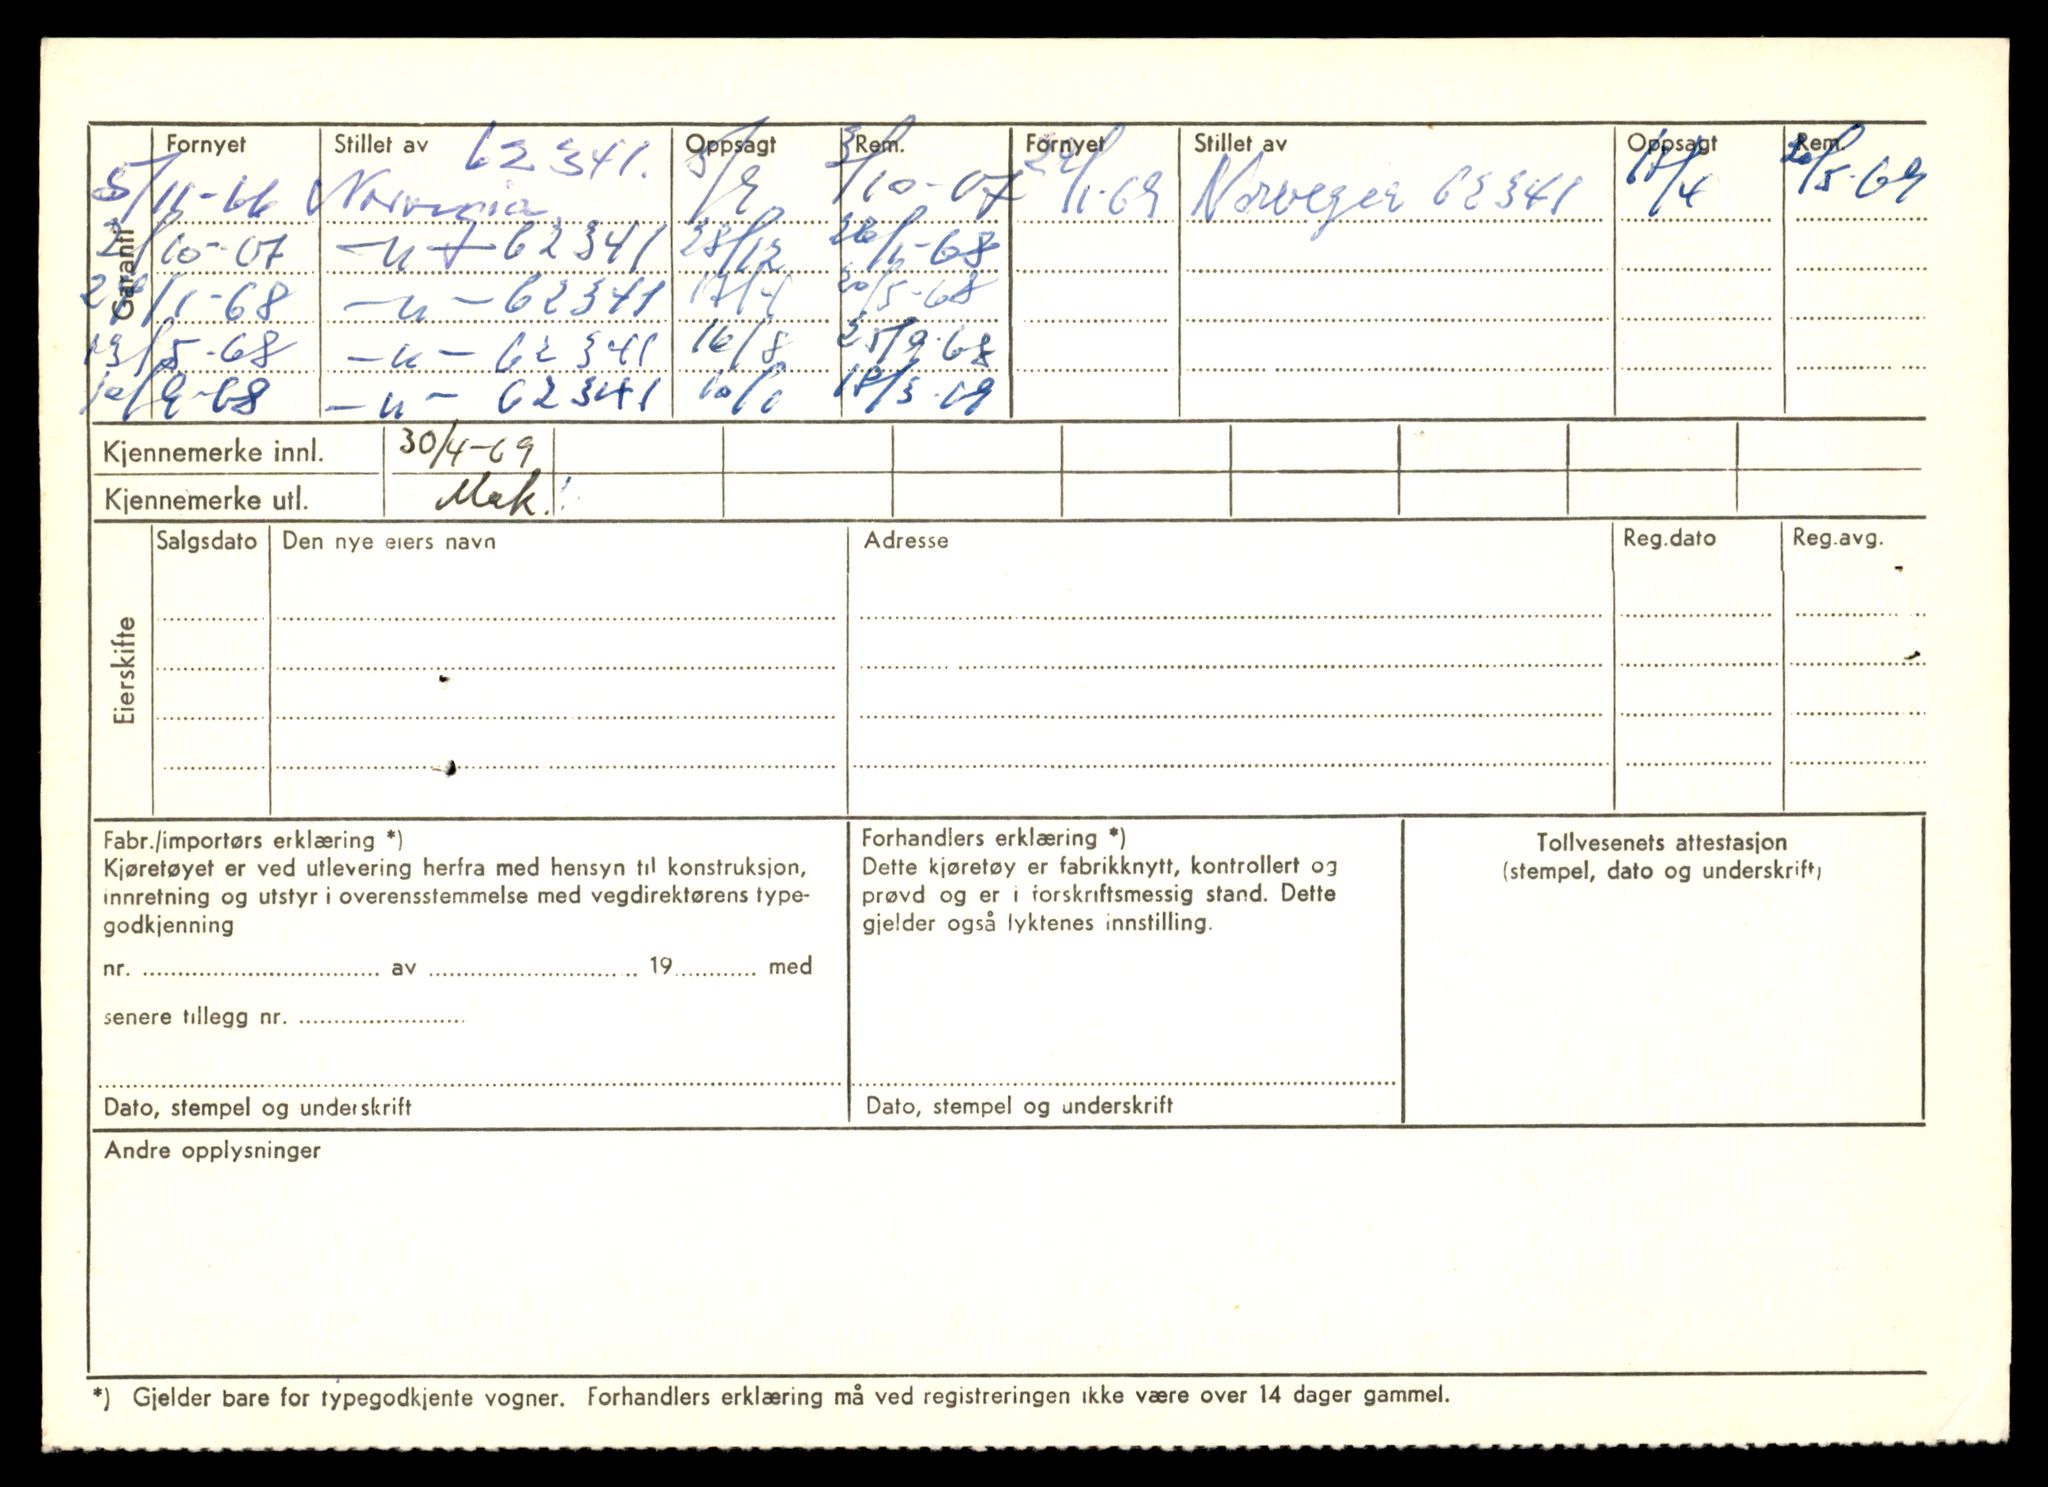 Garanti
Fornyet Stillet av 62341. Oppsagt Rem. Fornyet Stillet av Oppsagt Rem.
5/11-66 Norvegia 5/9 3/10-67 22/1-69 Norvegia 62341 17/4 20/5-69
2/10-67 -"- 62341 28/12 26/1-68
24/1-68 -"- 62341 17/4 20/5-68
13/5-68 -"- 62341 16/8 25/9-68
10/9-68 -"- 62341 10/1 18/3-69
Kjennemerke innl. 30/4-69
Kjennemerke utl. Mak.
Eierskifte
Salgsdato Den nye eiers navn Adresse Reg.dato Reg.avg.
Fabr./importørs erklæring *)
Kjøretøyet er ved utlevering herfra med hensyn til konstruksjon,
innretning og utstyr i overensstemmelse med vegdirektørens type-
godkjenning
nr. .......... av .......... 19 .......... med
senere tillegg nr. ..........
Dato, stempel og underskrift
Forhandlers erklæring *)
Dette kjøretøy er fabrikknytt, kontrollert og
prøvd og er i forskriftsmessig stand. Dette
gjelder også lyktenes innstilling.
Dato, stempel og underskrift
Tollvesenets attestasjon
(stempel, dato og underskrift)
Andre opplysninger
*) Gjelder bare for typegodkjente vogner. Forhandlers erklæring må ved registreringen ikke være over 14 dager gammel.